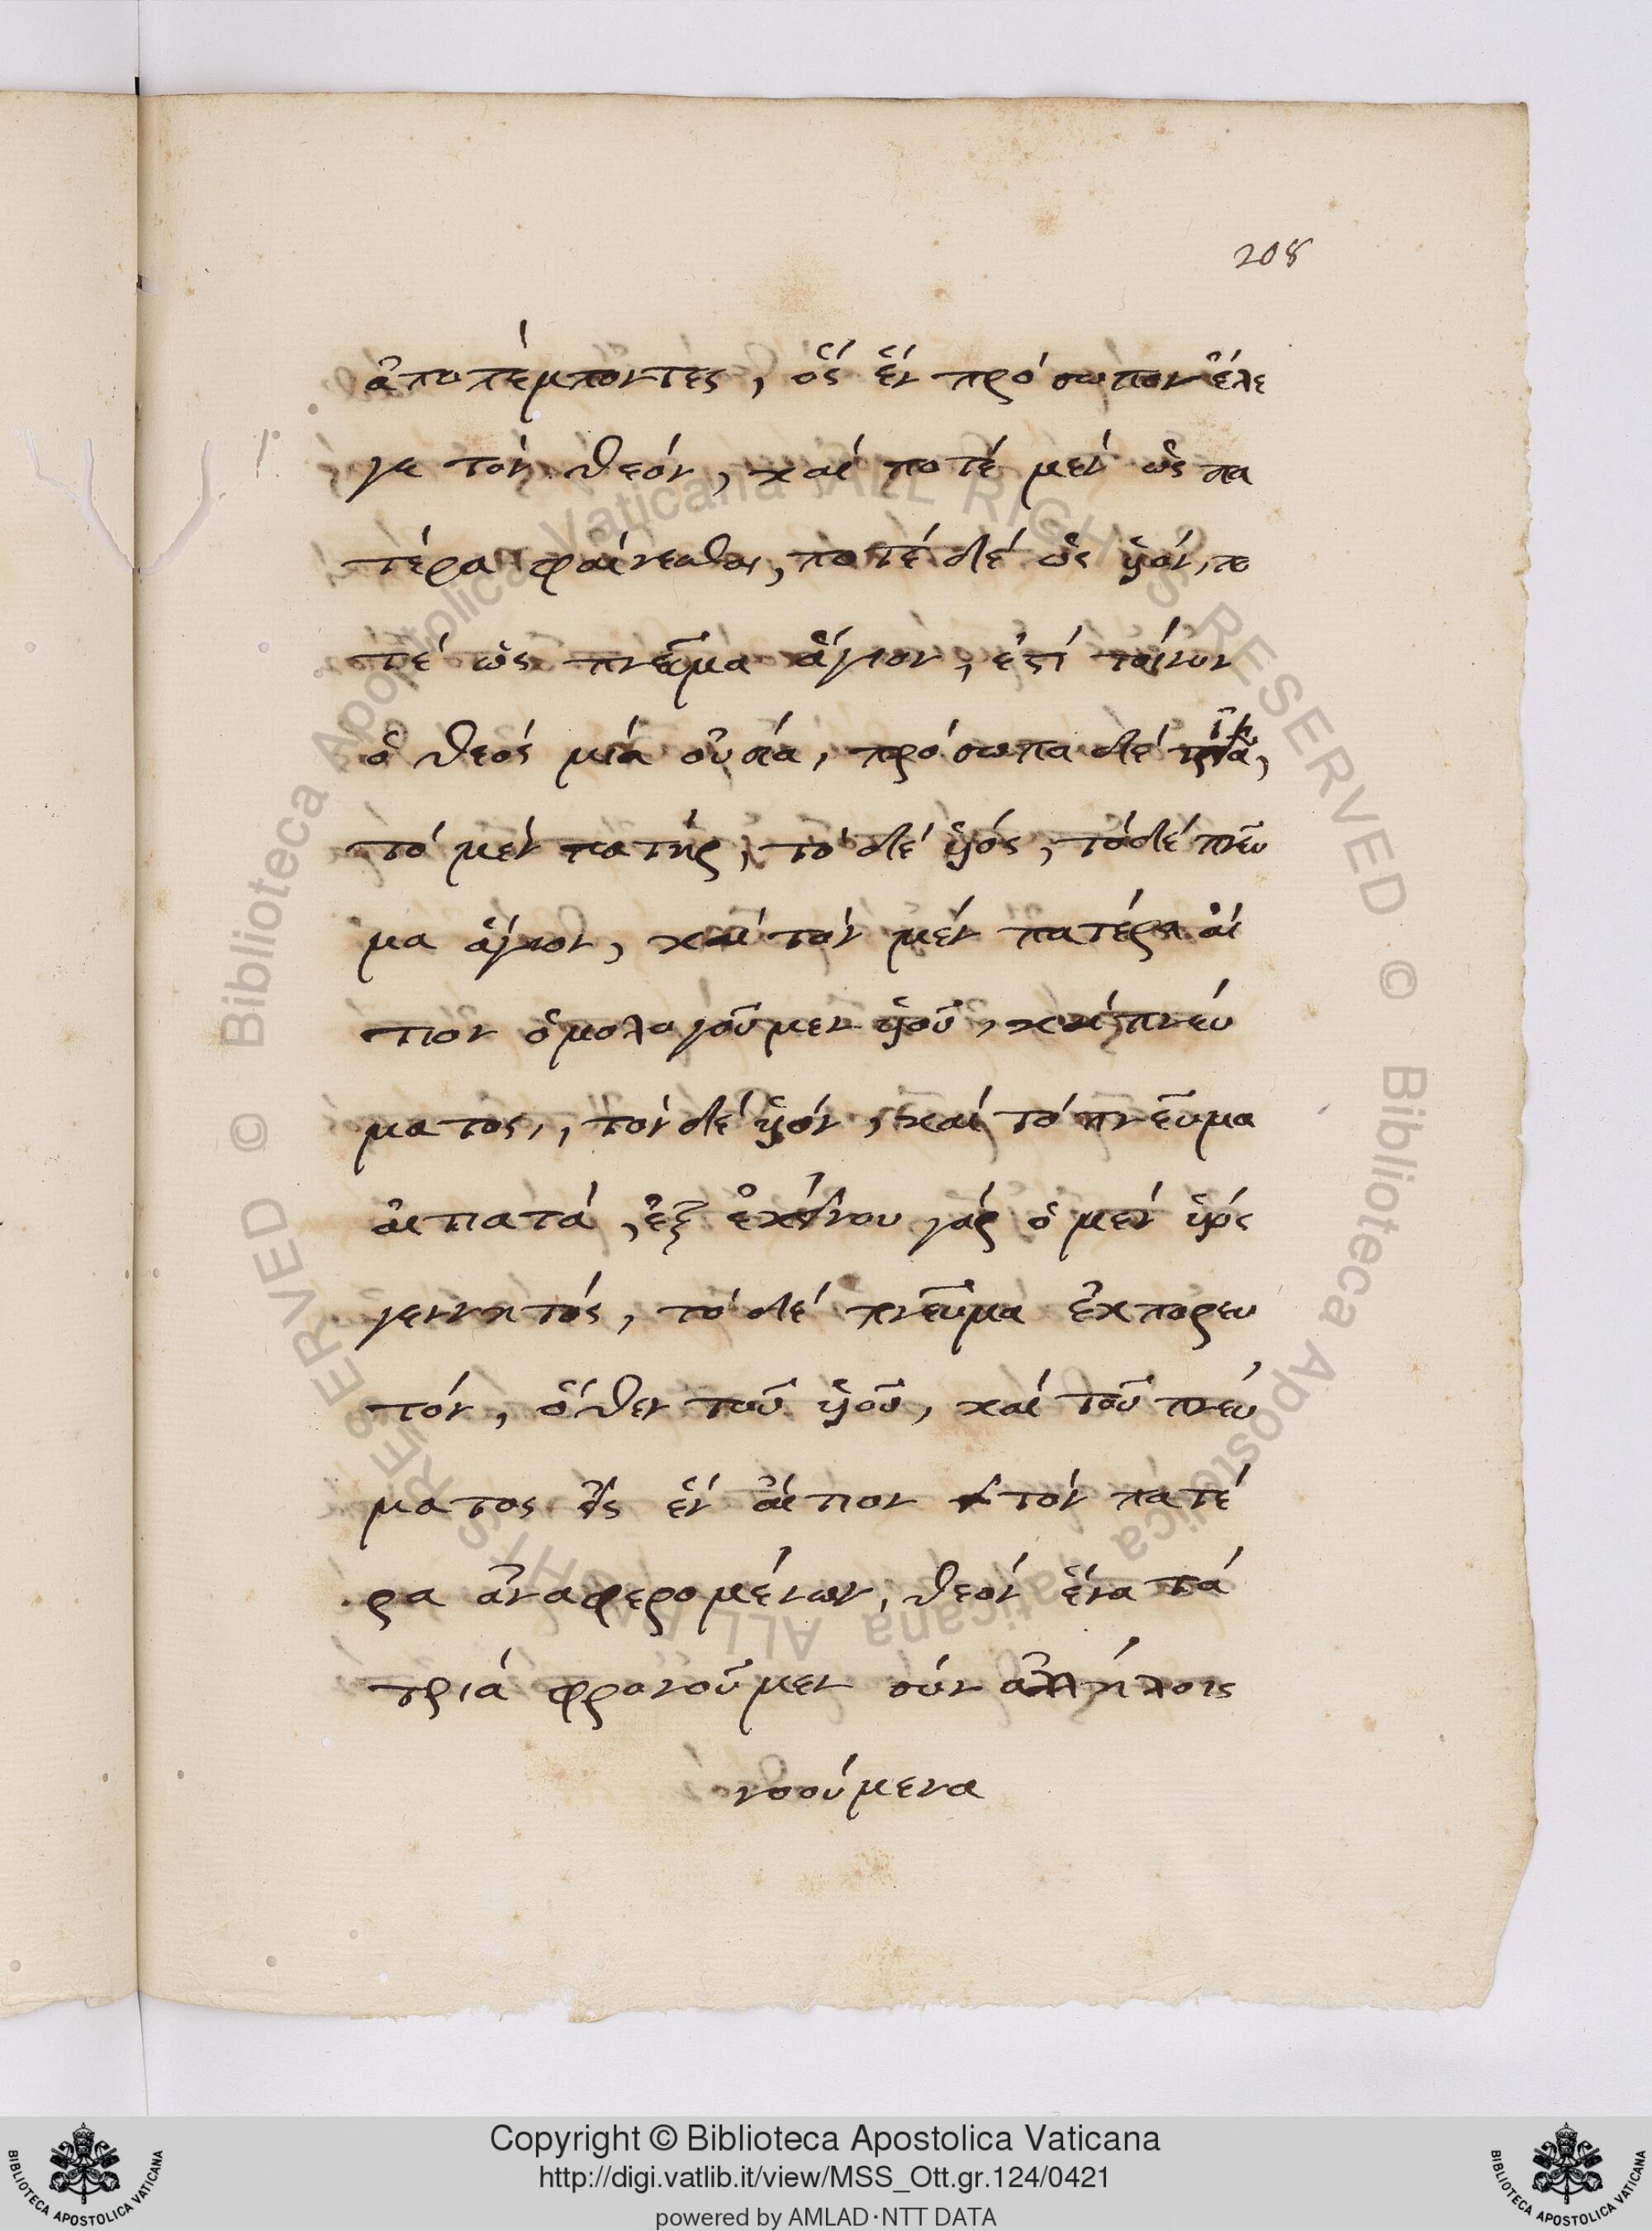 208
ἀποπέμποντες, ὅς ἕν πρόσωπον ἔλε
γε τόν θεόν, καί ποτέ μέν ὡς πα
τέρα φαίνεσθαι, ποτέ δέ ὡς υἱόν, πο
τέ ὡς πνεῦμα ἅγιον, ἐστί τοίνυν
ὁ θεός μιά οὐσία, πρόσωπα δέ τρία,
τό μέν πατήρ, τό δέ υἱός, τό δέ πνεῦ
μα ἅγιον, καί τόν μέν πατέρα αἴ
τιον ὁμολογοῦμεν υἱοῦ, καί πνεύ
ματος,, τόν δέ υἱόν, καί τό πνεῦμα
αἰτιατά, ἐξ ἐκείνου γάρ ὁ μέν υἱός
γεννητός, τό δέ πνεῦμα ἐκπορευ
τόν, ὅθεν τοῦ υἱοῦ, καί τοῦ πνεύ
ματος εἰς ἕν αἴτιον τόν πατέ
ρα ἀναφερομένων, θεόν ἕνα τά
τριά φρονοῦμεν σύν ἀλλήλοις
νοούμενα
Copyright © Biblioteca Apostolica Vaticana
http://digi.vatlib.it/view/MSS_Ott.gr.124/0421
powered by AMLAD·NTT DATA
BIBLIOTECA APOSTOLICA VATICANA
BIBLIOTECA APOSTOLICA VATICANA
© Biblioteca Apostolica Vaticana ALL RIGHTS RESERVED
© Biblioteca Apostolica Vaticana ALL RIGHTS RESERVED